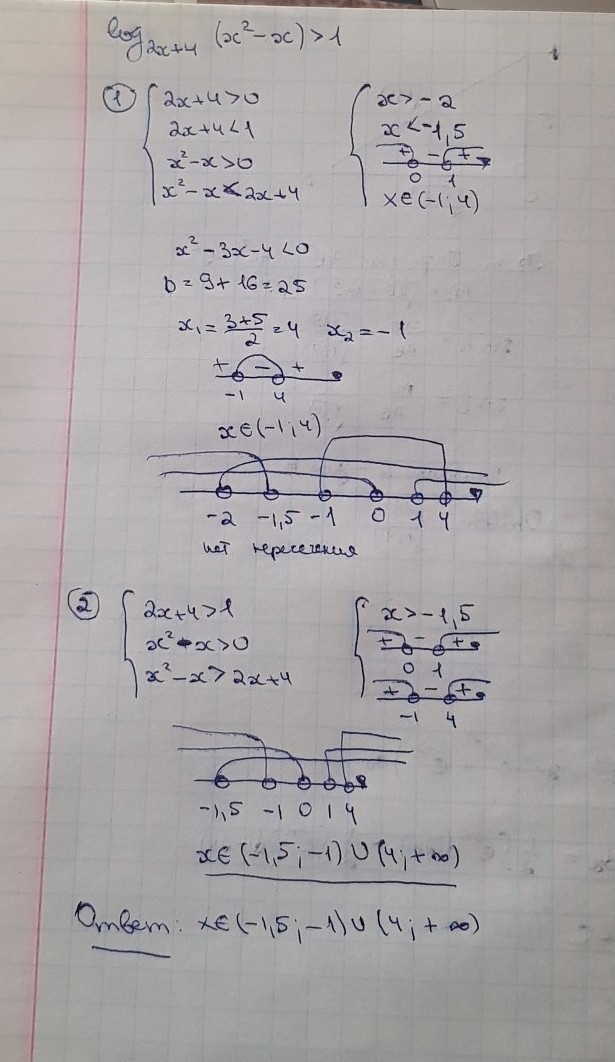 log₂ₓ₊₄ (x² - x) > 1
① { 2x+4>0
2x+4<1
x² - x>0
x² - x < 2x+4
{ x>-2
x<-1,5
+ - +
0 1
x∈(-1; 4)
x² - 3x - 4 <0
D = 9 + 16 = 25
x₁ = (3+5)/2 = 4 x₂ = -1
+ - +
-1 4
x∈(-1; 4)
-2 -1,5 -1 0 1 4
нет пересечения
② { 2x+4>1
x² - x>0
x² - x > 2x+4
{ x>-1,5
+ - +
0 1
+ - +
-1 4
-1,5 -1 0 1 4
x∈(-1,5; -1) ∪ (4; +∞)
Ответ: x∈(-1,5; -1) ∪ (4; +∞)